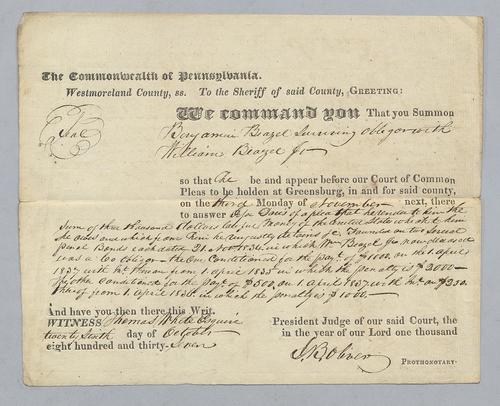 The Commonwealth of Pennsylvania.
Westmoreland County, ss. To the Sheriff of said County, GREETING:
We command you That you Summon
Seal
Benjamin Brazel Surviving obligor with
William Brazel Jr
so that he be and appear before our Court of Common
Pleas to be holden at Greensburg, in and for said county,
on the third Monday of November next, there
to answer of a plea that he render to him the
Sum of three thousand Dollars lawful money of the United States which to him
he owes and which from him he unjustly detains &c. Founded on two several
penal Bonds each dated 21 Nov 1834 in which Wm Brazel Jr now deceased
was a Co obligor - the One Conditioned for the paymt of $1000 on the 1 april
1837 with Int thereon from 1 april 1835 in which the penalty is $2000 -
the other Conditioned for the paymt of $500 on 1 april 1837 with Int on $250
thereof from 1 april 1836 in which the penalty is $1000 -
And have you then there this Writ.
WITNESS Thomas White Esquire President Judge of our said Court, the
twenty sixth day of October in the year of our Lord one thousand
eight hundred and thirty-seven
PROTHONOTARY.